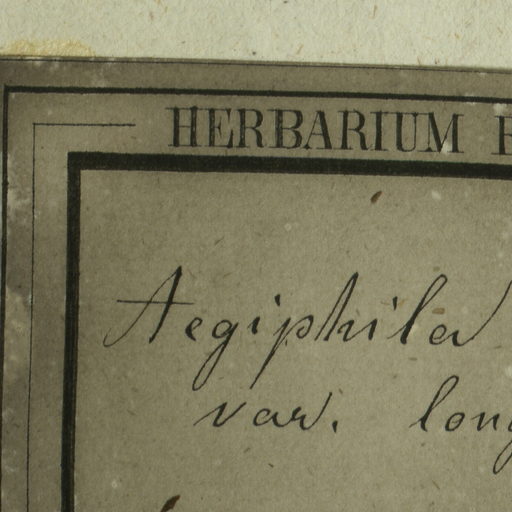 HERBARIUM
Aegiphila
var.